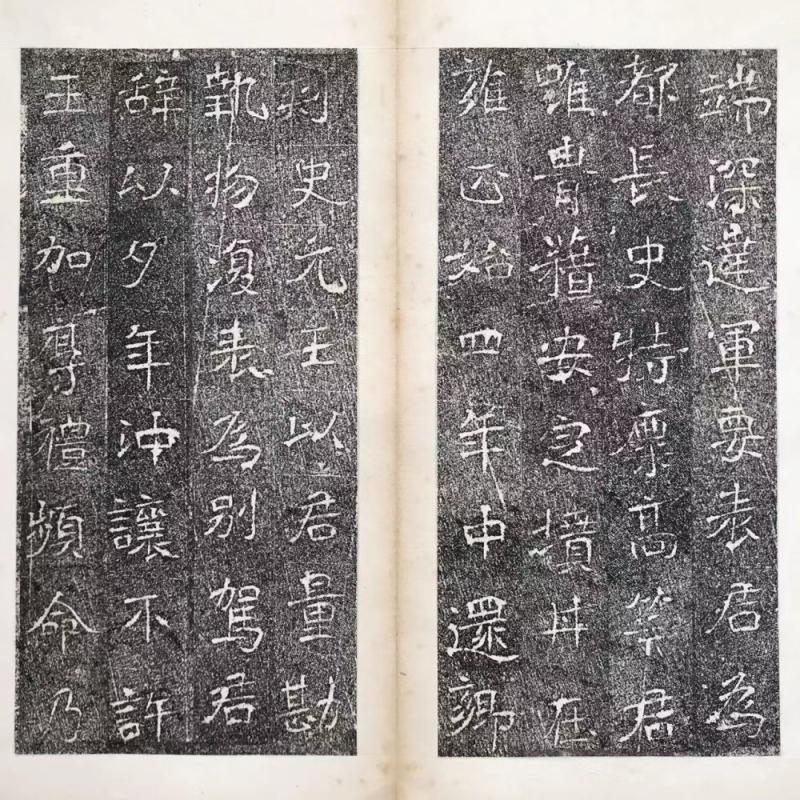 端深達軍要表君為
都長史特稟高筭君
雖胄藉安定墳井在
雍正始四年中還鄉
刺史元王以君量勘
執物復表為別駕君
辭以夕年沖讓不許
王重加尊禮頻命乃